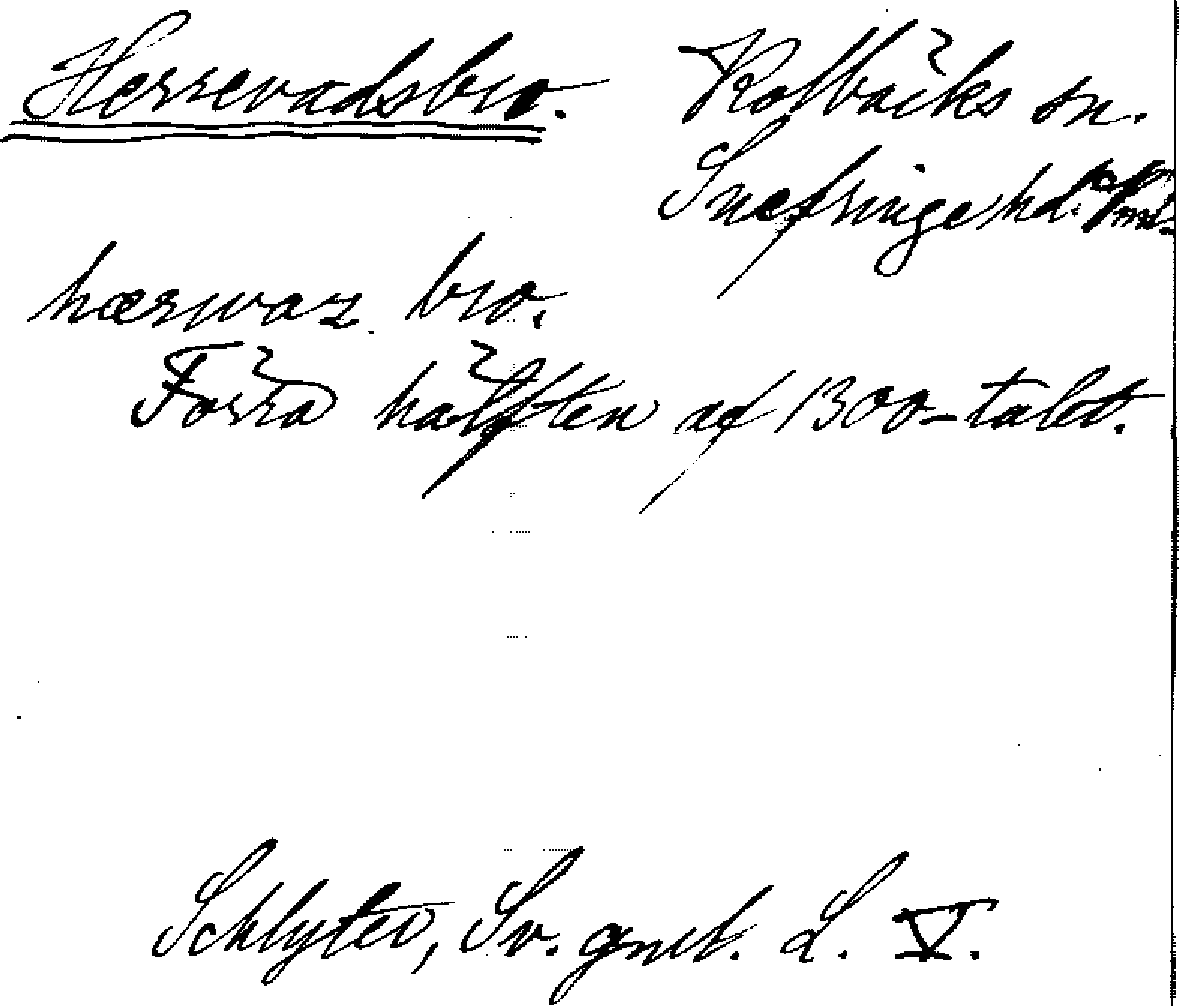 Herrevadsbro. Kolbäcks sn.
Snefringe hd.
hærwaz bro.
Förra hälften af 1300-talet.
Schlyter, Sv. gml. L. V.